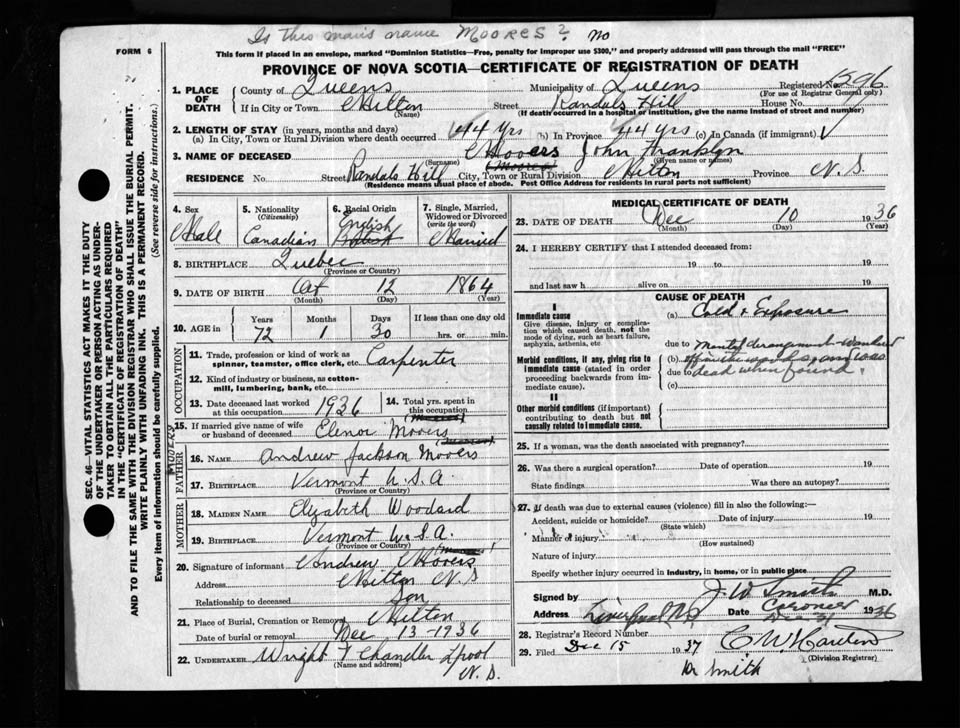 Is this man's name MOORES? No
FORM 6
This form if placed in an envelope, marked "Dominion Statistics—Free, penalty for improper use $300," and properly addressed will pass through the mail "FREE"
PROVINCE OF NOVA SCOTIA—CERTIFICATE OF REGISTRATION OF DEATH
1. PLACE OF DEATH
County of Queens Municipality of Queens Registered No. 6296
(For use of Registrar General only)
If in City or Town Milton Street Randals Hill House No.
(Name) (If death occurred in a hospital or institution, give the name instead of street and number)
2. LENGTH OF STAY (in years, months and days)
(a) In City, Town or Rural Division where death occurred 44 yrs (b) In Province 44 yrs (c) In Canada (if immigrant)
3. NAME OF DECEASED Moovers John Franklyn
(Surname) (Given name or names)
RESIDENCE No. Street Randals Hill City, Town or Rural Division Milton Province N.S.
(Residence means usual place of abode. Post Office Address for residents in rural parts not sufficient)
4. Sex Male
5. Nationality (Citizenship) Canadian
6. Racial Origin English
7. Single, Married, Widowed or Divorced (write the word) Married
8. BIRTHPLACE Quebec
(Province or Country)
9. DATE OF BIRTH Oct 12 1864
(Month) (Day) (Year)
10. AGE in Years Months Days If less than one day old
72 1 30 hrs. or min.
OCCUPATION
11. Trade, profession or kind of work as spinner, teamster, office clerk, etc. Carpenter
12. Kind of industry or business, as cotton-mill, lumbering, bank, etc.
13. Date deceased last worked at this occupation 1936
14. Total yrs. spent in this occupation
15. If married give name of wife or husband of deceased Elenor Moovers
FATHER
16. NAME Andrew Jackson Moovers
17. BIRTHPLACE Vermont U.S.A.
(Province or Country)
MOTHER
18. MAIDEN NAME Elizabeth Woodard
19. BIRTHPLACE Vermont U.S.A.
(Province or Country)
20. Signature of informant Andrew Moovers
Address Milton N.S
Relationship to deceased Son
21. Place of Burial, Cremation or Removal Milton
Date of burial or removal Dec 13-1936
22. UNDERTAKER Wright & Chandler L'pool
(Name and address) N.S.
MEDICAL CERTIFICATE OF DEATH
23. DATE OF DEATH Dec 10 1936
(Month) (Day) (Year)
24. I HEREBY CERTIFY that I attended deceased from:
19 to 19
and last saw h alive on 19
CAUSE OF DEATH
I
Immediate cause
Give disease, injury or complication which caused death, not the mode of dying, such as heart failure, asphyxia, asthenia, etc
(a) Cold & Exposure
due to Mental derangement. Wandered
Morbid conditions, if any, giving rise to immediate cause (stated in order proceeding backwards from immediate cause).
(b) off in the woods & was
due to dead when found.
(c)
II
Other morbid conditions (if important) contributing to death but not causally related to immediate cause.
25. If a woman, was the death associated with pregnancy?
26. Was there a surgical operation? Date of operation 19
State findings Was there an autopsy?
27. If death was due to external causes (violence) fill in also the following:—
Accident, suicide or homicide? Date of injury 19
(State which)
Manner of injury
(How sustained)
Nature of injury
Specify whether injury occurred in industry, in home, or in public place
Signed by J. W. Smith M.D.
Coroner
Address Liverpool NS Date Dec 1936
28. Registrar's Record Number
29. Filed Dec 15 1937
(Division Registrar)
Dr Smith
SEC. 46—VITAL STATISTICS ACT MAKES IT THE DUTY
OF THE UNDERTAKER OR PERSON ACTING AS UNDERTAKER TO OBTAIN ALL THE PARTICULARS REQUIRED
IN THE "CERTIFICATE OF REGISTRATION OF DEATH"
AND TO FILE THE SAME WITH THE DIVISION REGISTRAR WHO SHALL ISSUE THE BURIAL PERMIT.
WRITE PLAINLY WITH UNFADING INK. THIS IS A PERMANENT RECORD.
Every item of information should be carefully supplied. (See reverse side for instructions.)